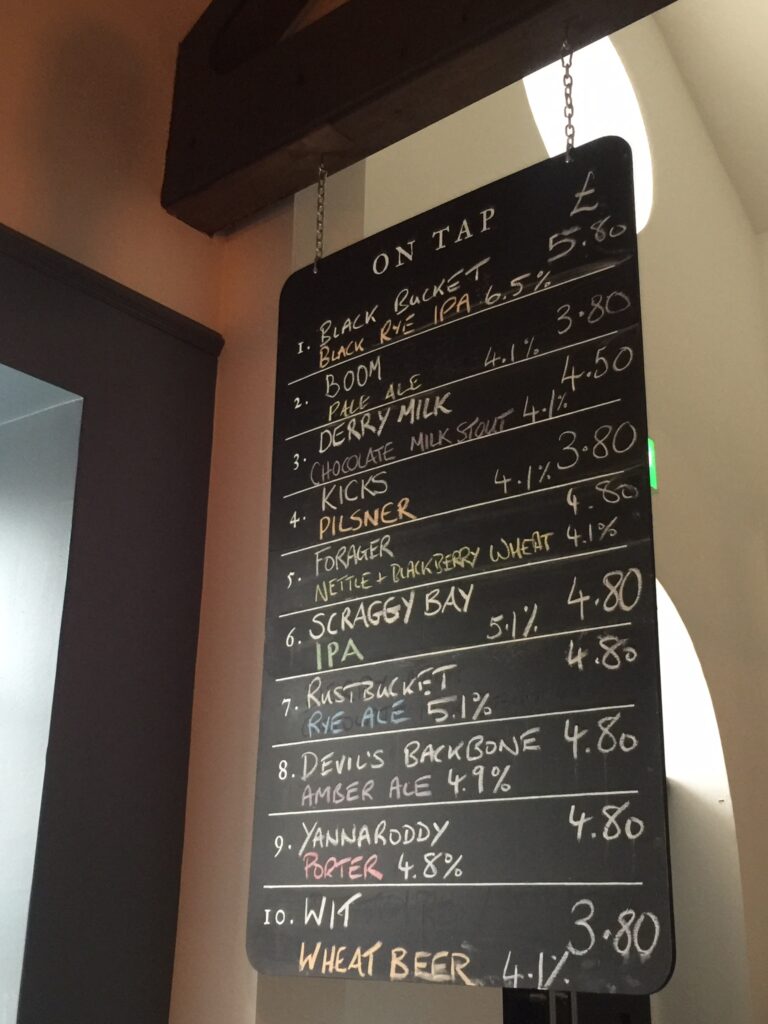 ON TAP £
1. BLACK BUCKET 5.80
BLACK RYE IPA 6.5%
2. BOOM 3.80
PALE ALE 4.1%
3. DERRY MILK 4.50
CHOCOLATE MILK STOUT 4.1%
4. KICKS 3.80
PILSNER 4.1%
5. FORAGER 4.80
NETTLE + BLACKBERRY WHEAT 4.1%
6. SCRAGGY BAY 4.80
IPA 5.1%
7. RUSTBUCKET 4.80
RYE ALE 5.1%
8. DEVIL'S BACKBONE 4.80
AMBER ALE 4.9%
9. YANNARODDY 4.80
PORTER 4.8%
10. WIT 3.80
WHEAT BEER 4.1%